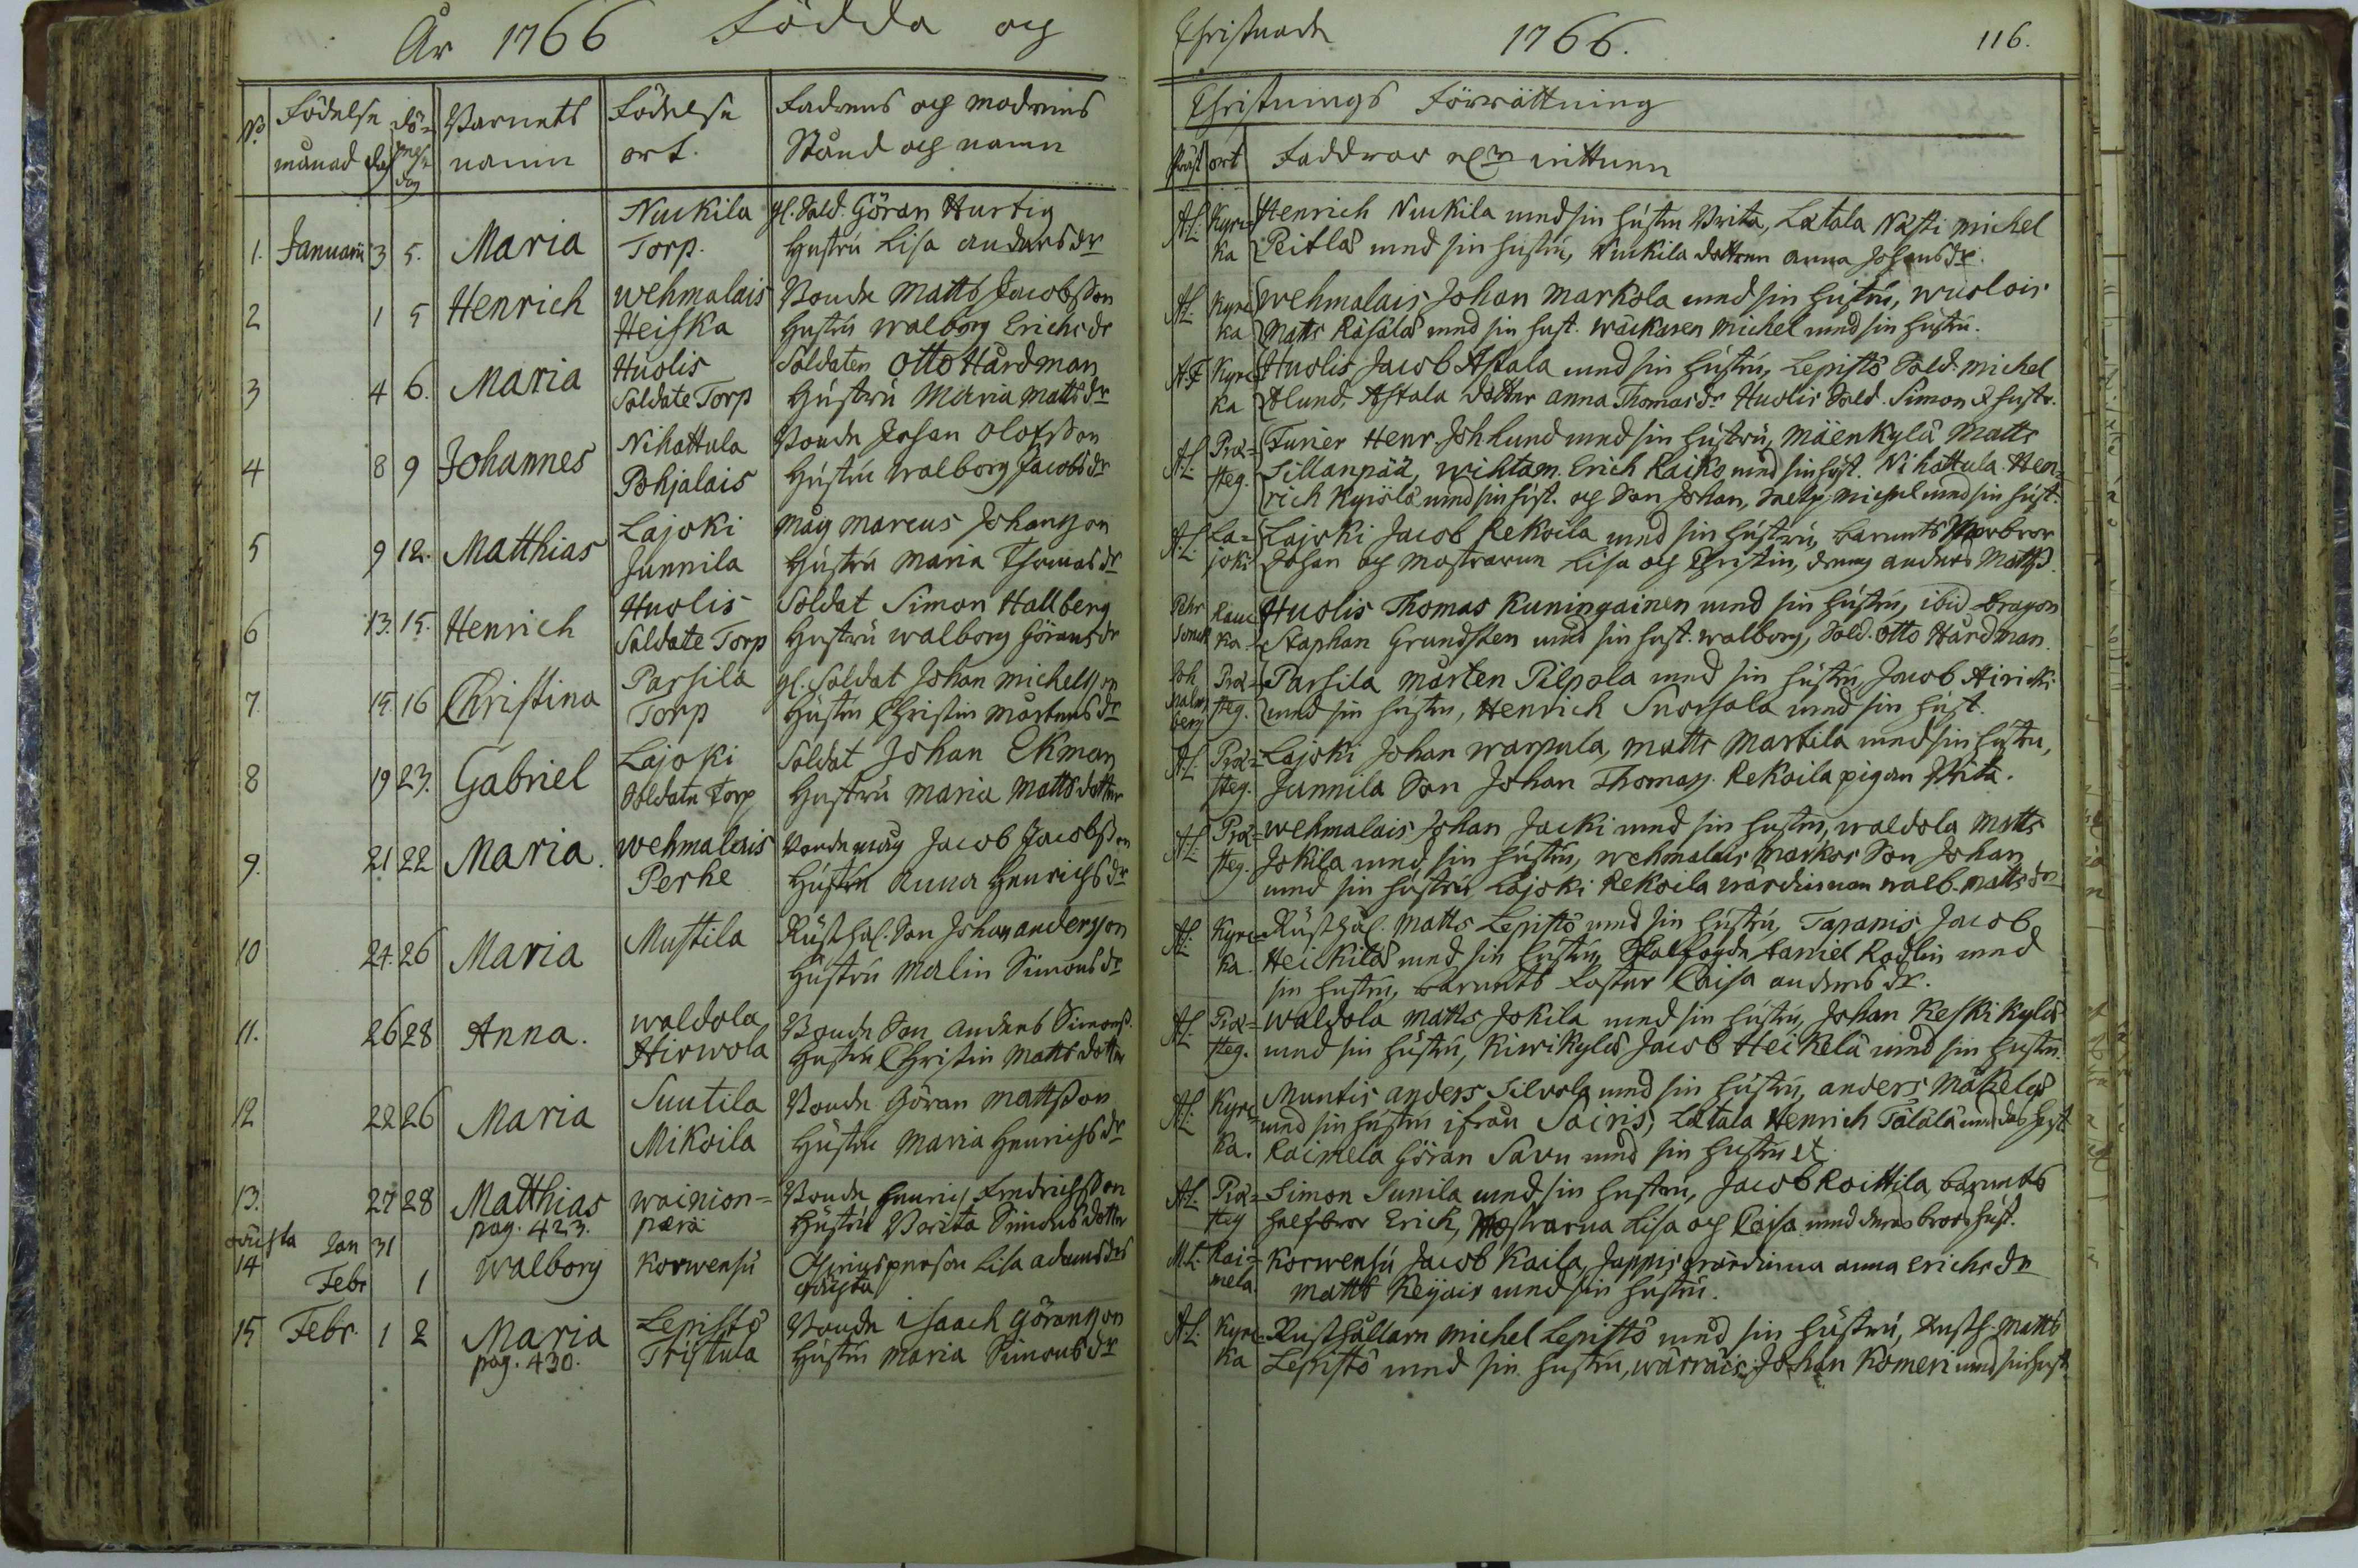 År 1766 Födda och
No. Födelse Dö- Barnets Födelse Fadrens och modrens
månad dag pelse dag namn ort. Stånd och namn
1. Januarii 3 5. Maria Nuckila Torp. gl. Sold. Göran Hurtig
Hustru Lisa andersdr
2 1 5 Henrich wehmalais Heiska Bonde Matts Jacobsson
Hustru walborg Erichsdr
3 4 6. Maria Huolis Soldate Torp Soldaten Otto Hårdman
Hustru Maria Mattsdr
4 8 9 Johannes Nihattula Pohjalais Bonde Johan Olofsson
Hustru walborg Jacobsdr
5 9 12. Matthias Lajoki Junnila måg marcus Johansson
Hustru Maria Thomasdr
6 13. 15. Henrich Huolis Soldate Torp Soldat Simon Hallberg
Hustru walborg Göransdr
7. 15 16 Christina Parsila Torp gl. Soldat Johan michelsson
Hustru Christin Mårtensdr
8 19 23. Gabriel Lajoki Soldate Torp Soldat Johan Ekman
Hustru maria Matts dotter
9. 21 22 Maria. wehmalais Perhe Bonde måg Jacob Jacobsson
Hustru Anna Henrichsdr
10 24. 26 Maria Mustila Rusthål. Son Johan andersson
Hustru Malin Simonsdr
11. 26 28 Anna. waldola Hirwola Bonde Son anders Simonss.
Hustru Christin Matts dotter
12 22 26 Maria Suutila Mikoila Bonde Göran Mattsson
Hustru Maria Henrichsdr
13. 27 28 Matthias pag. 423. wainion= pera Bonde Henrich Fredrichsson
Hustru Borita Simons dotter
oächta 14 Jan 31 Febr 1 walborg Korwensu Qvinsperson Lisa adamsdr
oächta
15 Febr. 1 2 Maria pag. 430. Lepistö Tristula Bonde isaach Göransson
Hustru Maria Simonsdr
Christnade 1766. 116.
Christnings Förrättning
Präst ort Faddrar och vittnen
A:L: Kyrc= ka Henrich Nuckila med sin hustru Brita, Latala Nästi michel
Peitlas med sin hustru, Nuckila dottren anna Johansdr.
A:L: Kyrc= ka wehmalais Johan Markola med sin hustru, wuolois
Matts Räsälä med sin hust. wäckaren Michel med sin hustru.
A.F Kyrc= ka Huolis Jacob Astala med sin hustru, Lepistö Sold. michel
Ahlund, Astala dotter anna Thomasdr Huolis Sold. Simon & hustr.
A:L: Præ= steg. Furier Henr. Joh Lund med sin hustru, Mäenkylä Matts
Sillanpää, wihtam. Erich Raiko med sin hust. Nihattula Hen=
rich Kyrölä med sin hust. och Son Johan, michel med sin hust.
A:L: La= joki Lajoki Jacob Rekoila med sin hustru, barnets Morbror
Johan och mostrarne Lisa och Christin, dreng anders Mattss.
Pehr Sonck Kyrc ka Huolis Thomas Kuningainen med sin hustru, ibid dragon
Staphan Grundsten med sin hust. walborg, Sold. Otto Hårdman.
Joh Malmberg Præ= steg. Parsila mårten Pilpola med sin hustru, Jacob Hiricki
med sin hustru, Henrich Snorsala med sin hust.
A:L: Præ= steg. Lajoki Johan warpula, matts Martila med sin hustru,
Junnila Son Johan Thomass. Rekoila pigan Brita.
A:L: Præ= steg. wehmalais Johan Jacki med sin hustru, waldola Matts
Jokila med sin hustru, wehmalais Markos Son Johan
med sin hustru, Lajoki Rekoila wärdinnan walb. mattsdr
A:L: Kyrc= ka. Rusthål. Matts Lepistö med sin hustru, Tapanis Jacob
Heickilä med sin hustru, Daniel Rodlin med
sin hustru, barnets Faster Caisa andersdr.
A:L: Præ= steg. waldola matts Jokila med sin hustru, Johan Keskikylä
med sin hustru, Kiwikylä Jacob Heikelä med sin hustru.
A:L: Kyrc= ka. Muntis anders Silvola med sin hustru, anders Mäkelä
med sin hustru ifrån Sairis, Latala Henrich Tälälä med des hust
Raimela Göran Savu med sin hustru &.
A:L: Præ= steg Simon Sunila med sin hustru, Jacob Koittila, barnets
halfbror Erick, Mostrarna Lisa och Caisa med deras brors hust.
M.L: Rai= mela Korwensu Jacob Kaila, Jappis wärdinna anna Erichsdr
matts Keijais med sin hustru.
A:L: Kyrc= ka Rusthållaren michel Lepistö med sin hustru, Rusth. Matts
Lepistö med sin hustru, wärräis Johan Komeri med sin hust.